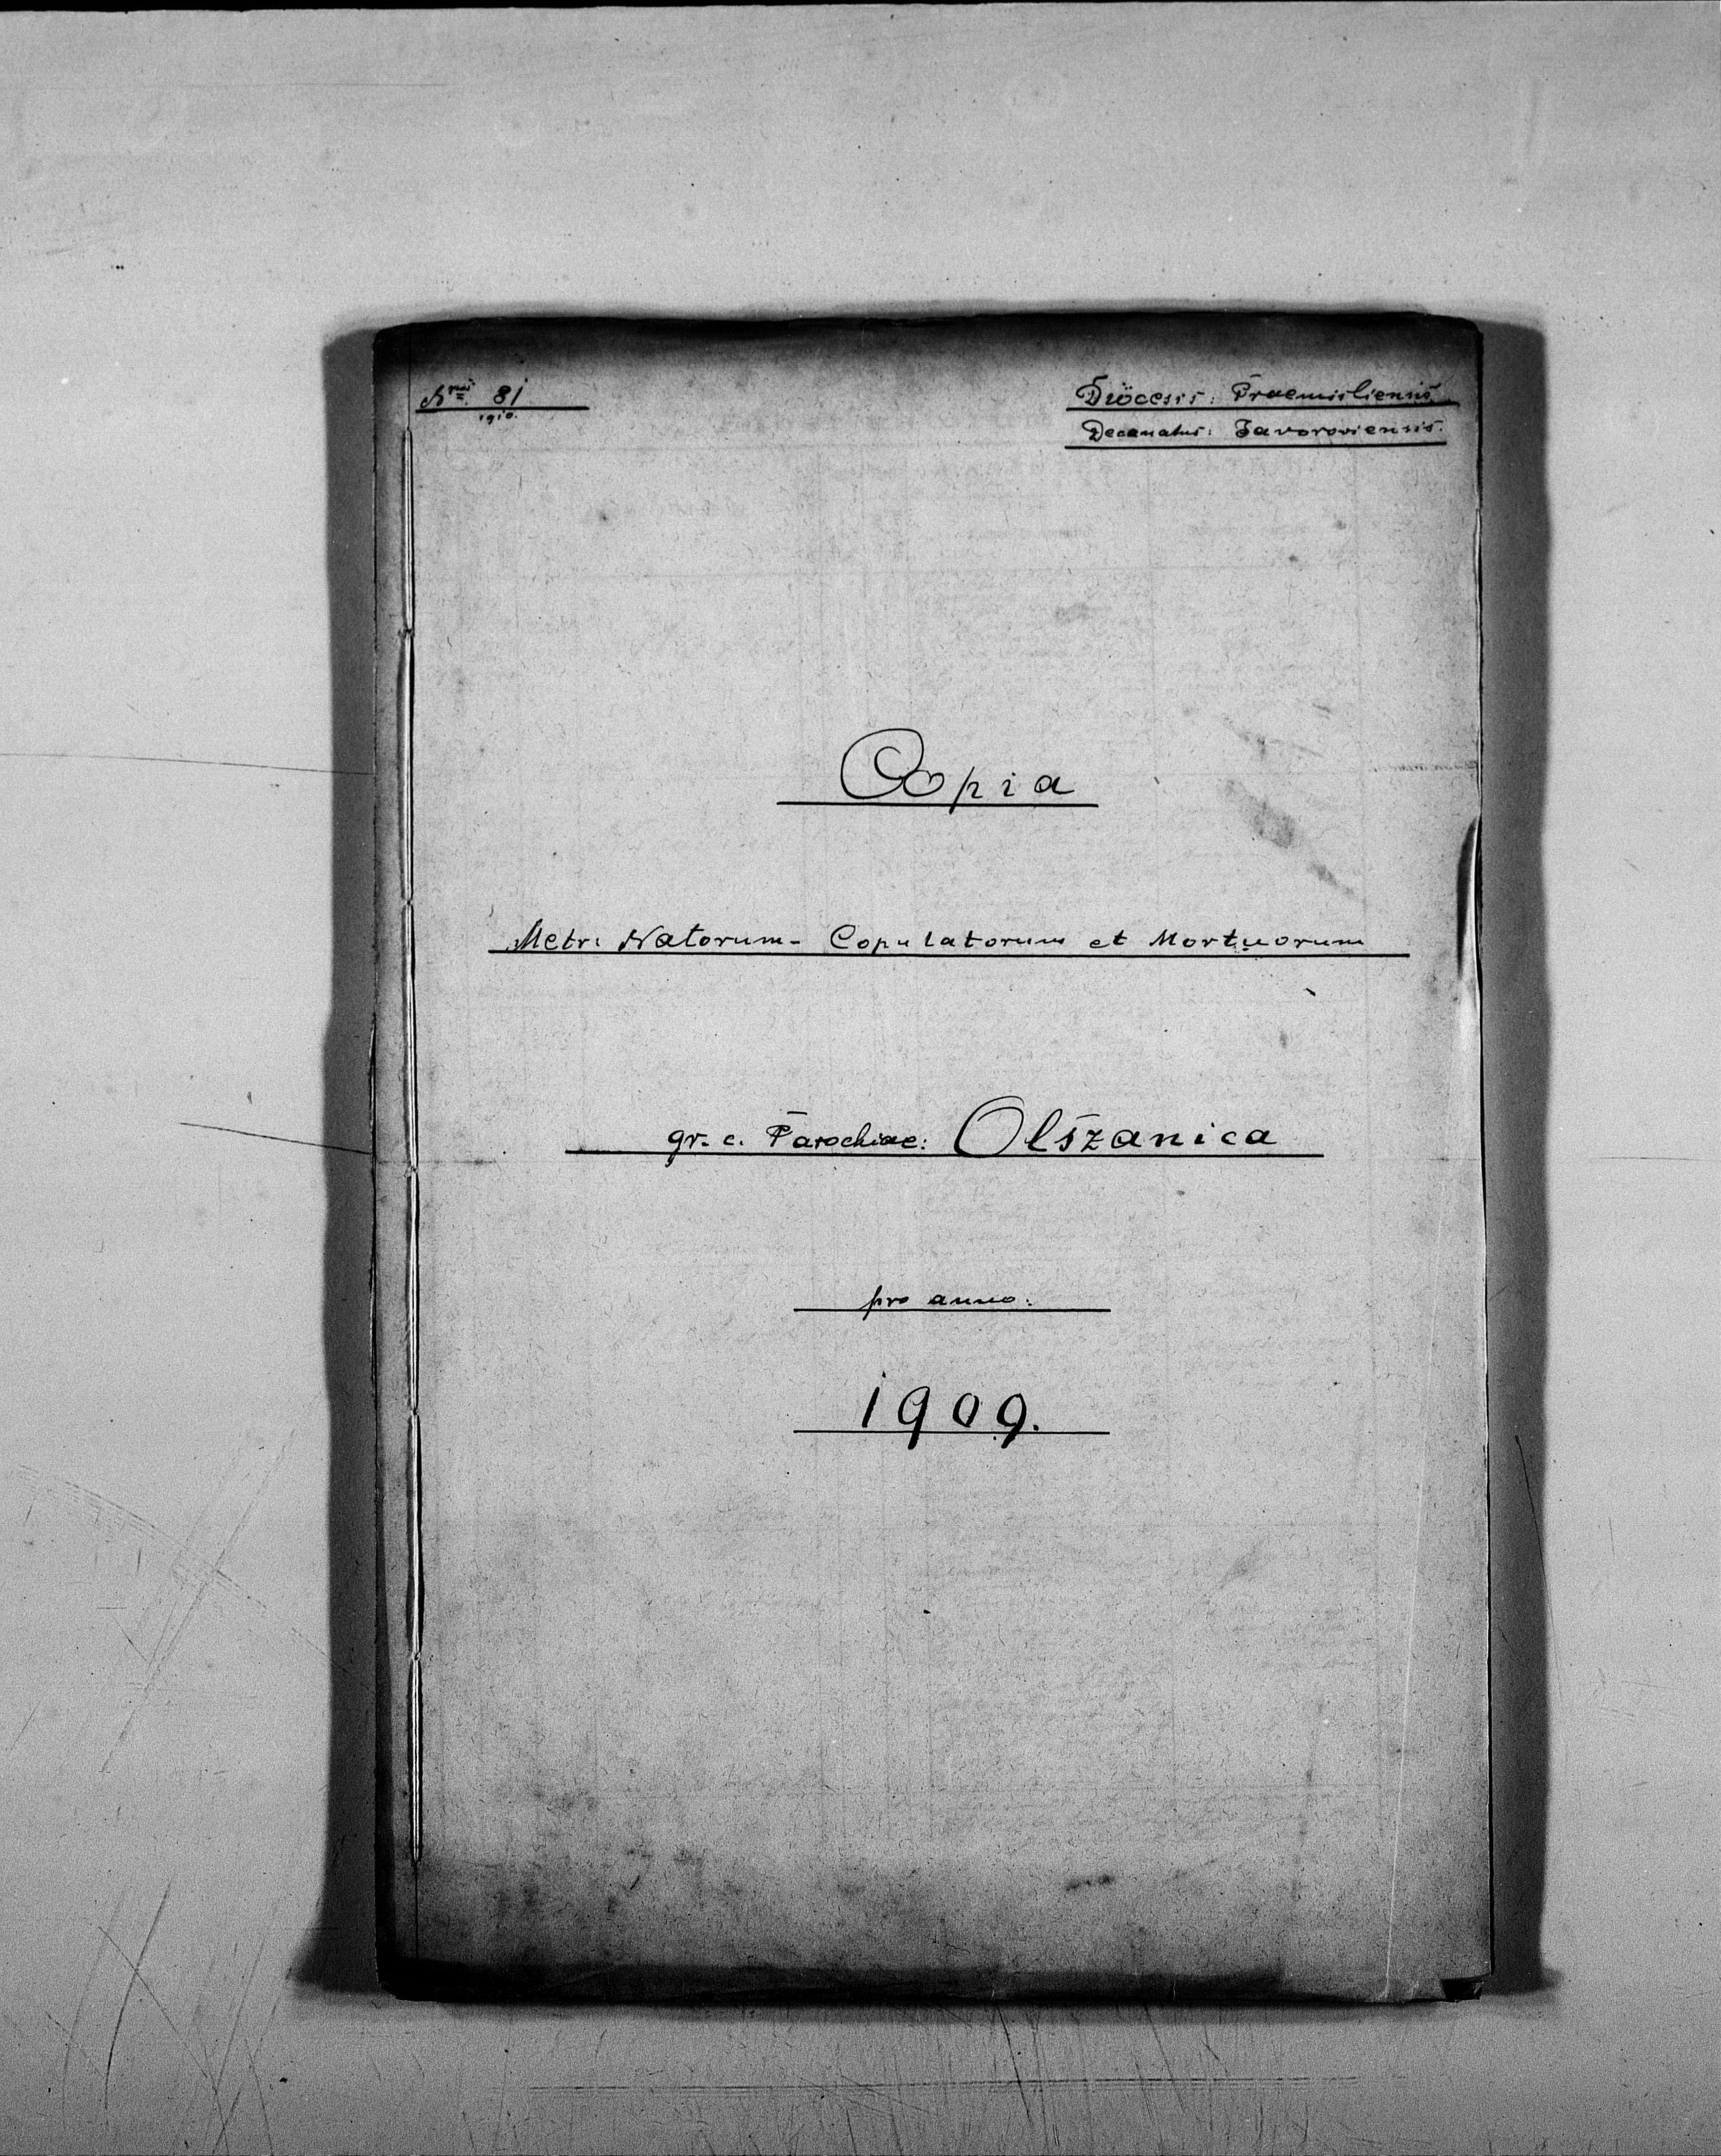 Nrus 81
1910.
Diöcesis: Praemisliensis.
Decanatus: Javoroviensis.
Copia
Metr: Natorum- Copulatorum et Mortuorum
gr. c. Parochiae: Olszanica
pro anno:
1909.